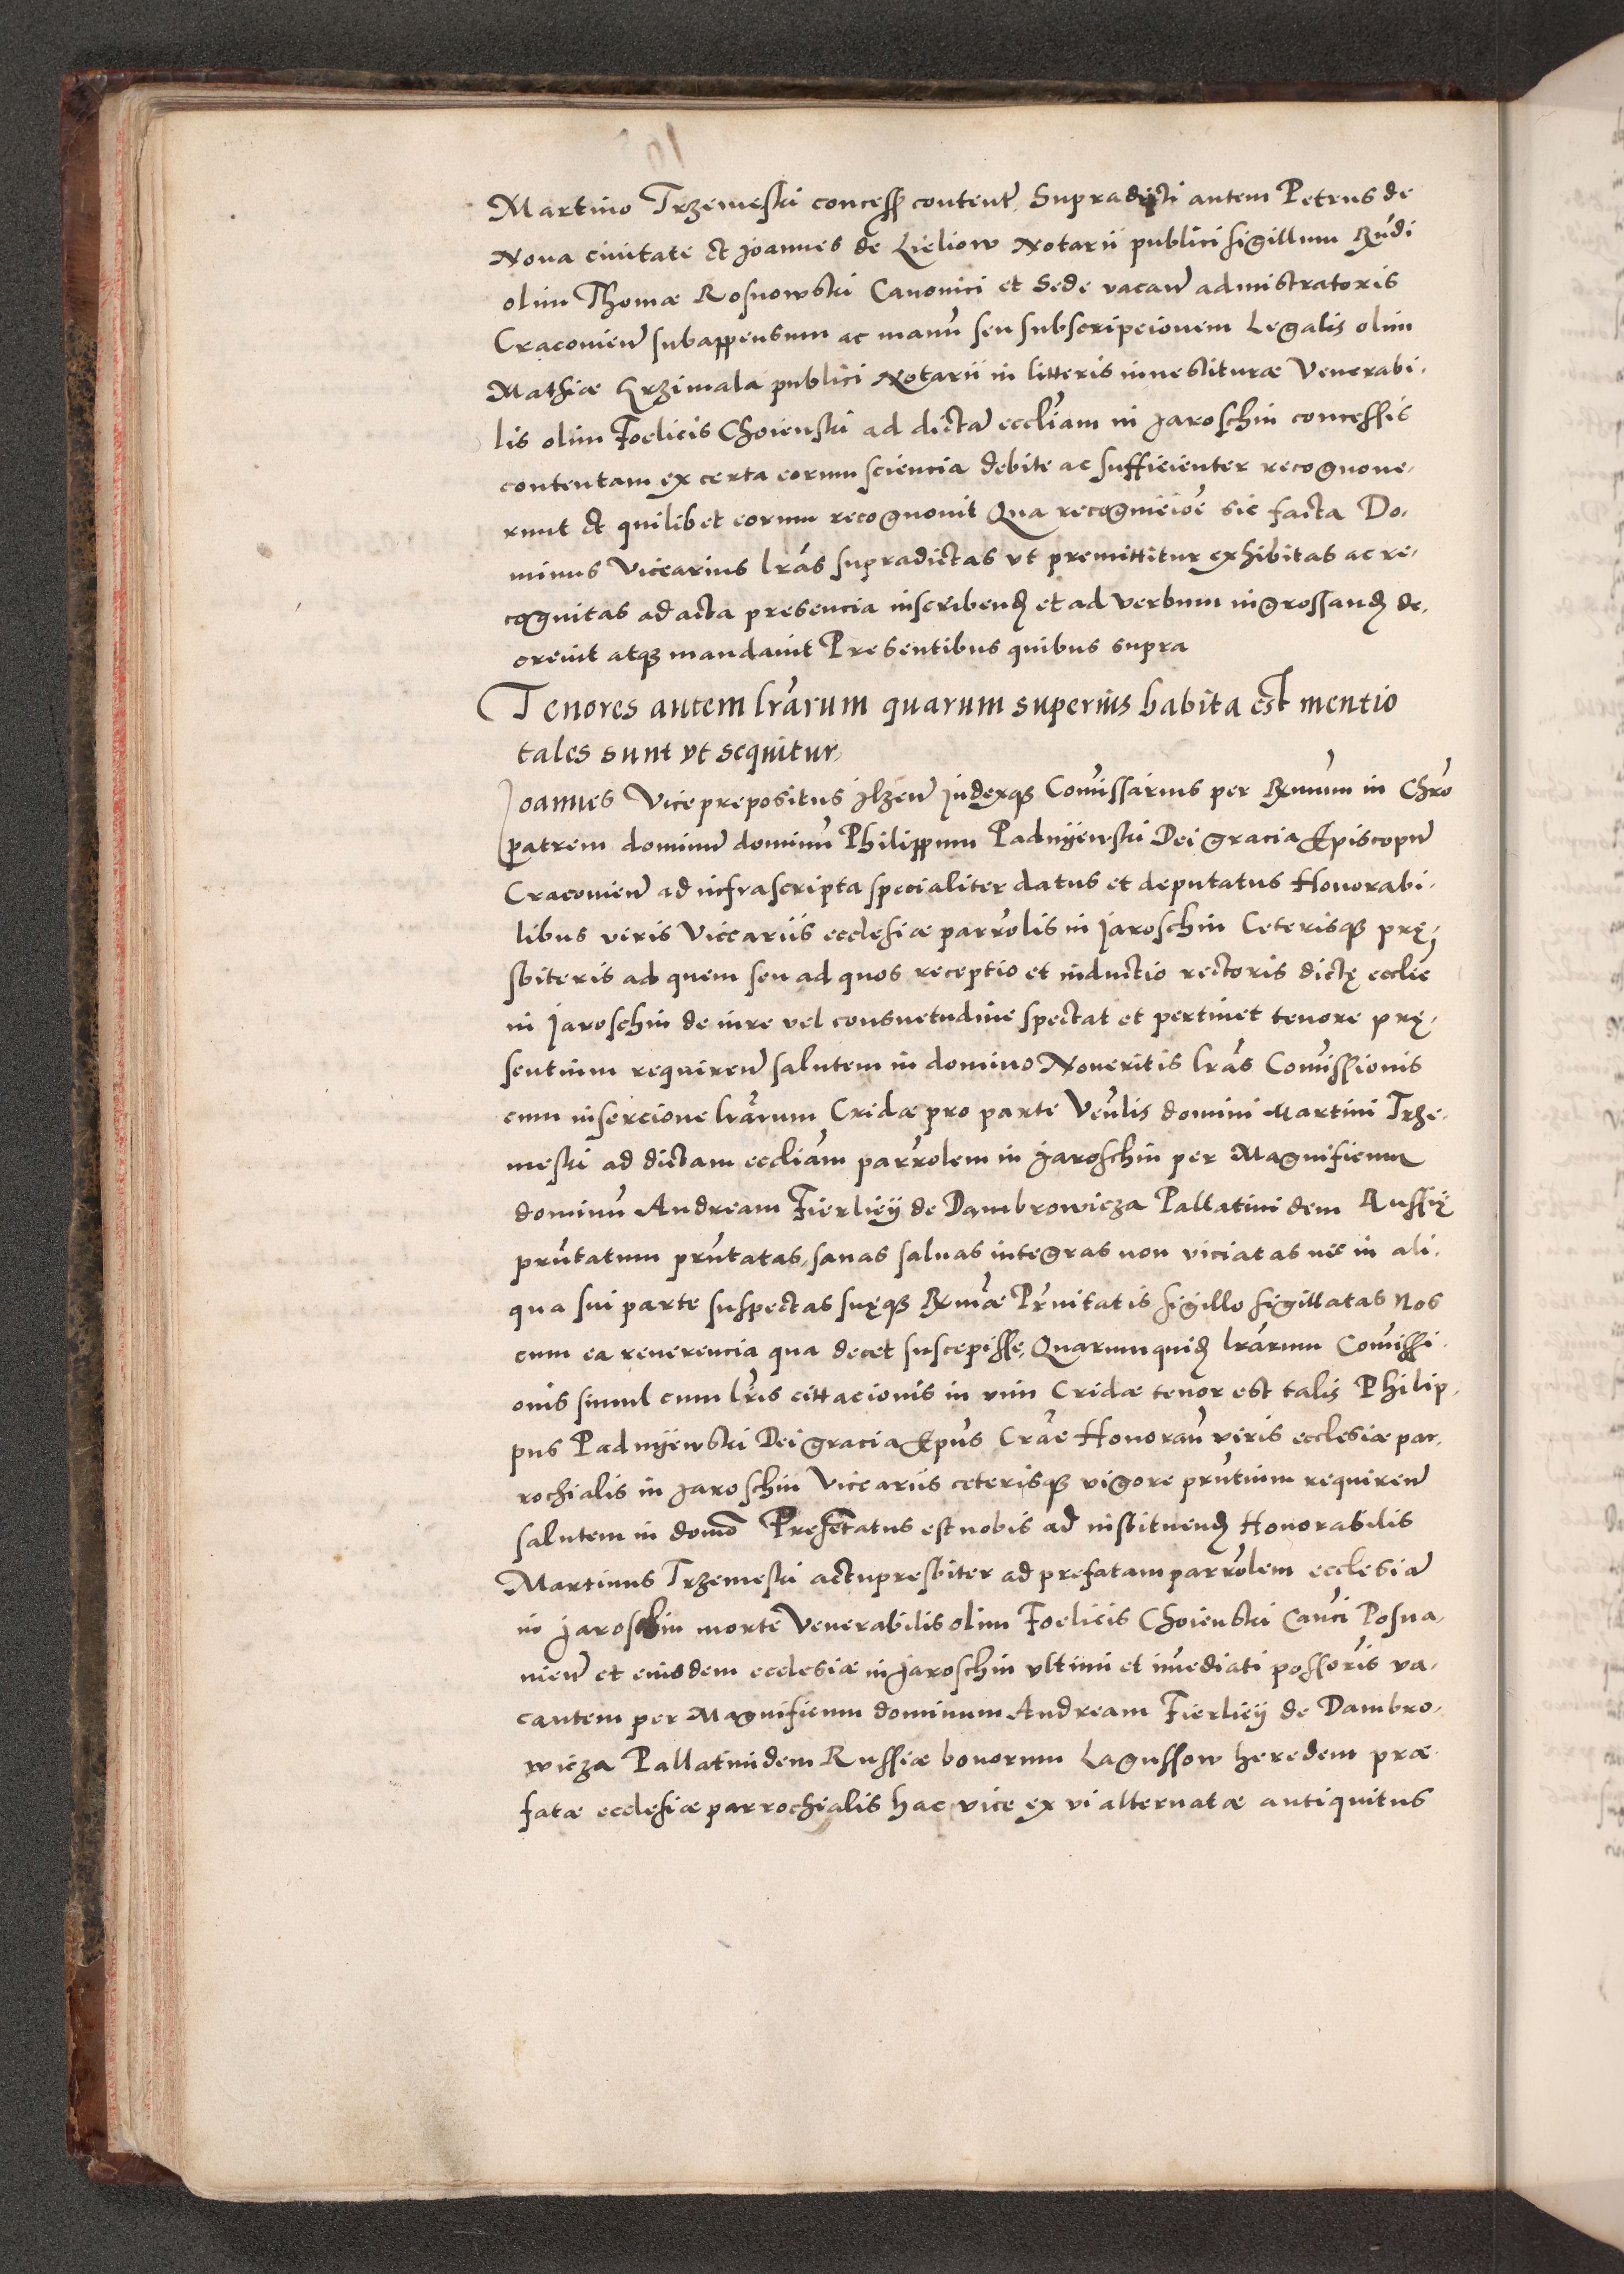 Martino Trzemeski concess content. Supradicti autem Petrus de
Noua ciuitate et Joannes de Lieliow Notarii publici sigillum Rndi
olim Thomæ Rosnowski Canonici et Sede vacan̄ admistratoris
Cracouien̄ subappensum ac manū seu subscripcionem Legalis olim
Mathiæ Krzimala publici Notarii in litteris inuestituræ Venerabi,
lis olim Foelicis Choienski ad dictā eccliam in Jaroschin concessis
contentam ex certa eorum sciencia debite ac sufficienter recognoue,
runt et quilibet eorum recognouit Qua recognicioē sic facta Do,
minus Vicearius lrās supradictas vt premittitur exhibitas ac re,
cognitas ad acta presencia inscribend et ad verbum ingrossand de,
creuit atq mandauit Presentibus quibus supra
Tenores autem lrārum quarum superius habita est mentio
tales sunt vt sequitur,
Joannes Viceprepositus Jlzen̄ Judexq Com̄issarius per Rmūm in Chrō
patrem dominū dominū Philippum Padnyewski Dei gracia Episcopū
Cracouien̄ ad infrascripta specialiter datus et deputatus Honorabi,
libus viris Viceariis ecclesiæ parrōlis in Jaroschin Ceterisq prę,
sbiteris ad quem seu ad quos receptio et inductio rectoris dictę eccliē
in Jaroschin de iure vel consuetudine spectat et pertinet tenore prę,
sentium requiren̄ salutem in domino Noueritis lrās Com̄issionis
cum insercione lrārum Cridæ pro parte Venlis domini Martini Trze,
meski ad dictam eccliam parrōlem in Jaroschin per Magnificum
dominū Andream Fierliey de Dambrowicza Pallatinidem Russię
prn̄tatum prn̄tatas, sanas saluas integras non viciatas nec in ali,
qua sui parte suspectas suęq Rmæ Prn̄itatis sigillo sigillatas Nos
cum ea reuerencia qua decet suscepisse, Quarumquid lrārum Com̄issi,
onis simul cum lrīs cittacionis in vim Cridæ tenor est talis Philip,
pus Padnyewski Dei gracia Epūs Crāc Honoran̄ viris ecclesiæ par,
rochialis in Jaroschin Vicearius ceterisq vigore prn̄tium requiren̄
salutem in domō Presētatus est nobis ad instituend Honorabilis
Martinus Trzemeski actupresbiter ad prefatam parrōlem ecclesiā
in Jaroschin morte Venerabilis olim Foelicis Choienski Canci Posna,
nien̄ et eiusdem ecclesiæ in Jaroschin vltimi et im̄ediati possoris va,
cantem per Magnificum dominum Andream Fierliey de Dambro,
wicza Pallatinidem Russiæ bonorum Lagussow heredem præ,
fatæ ecclesiæ parrochialis hac vice ex vi alternatæ antiquitus